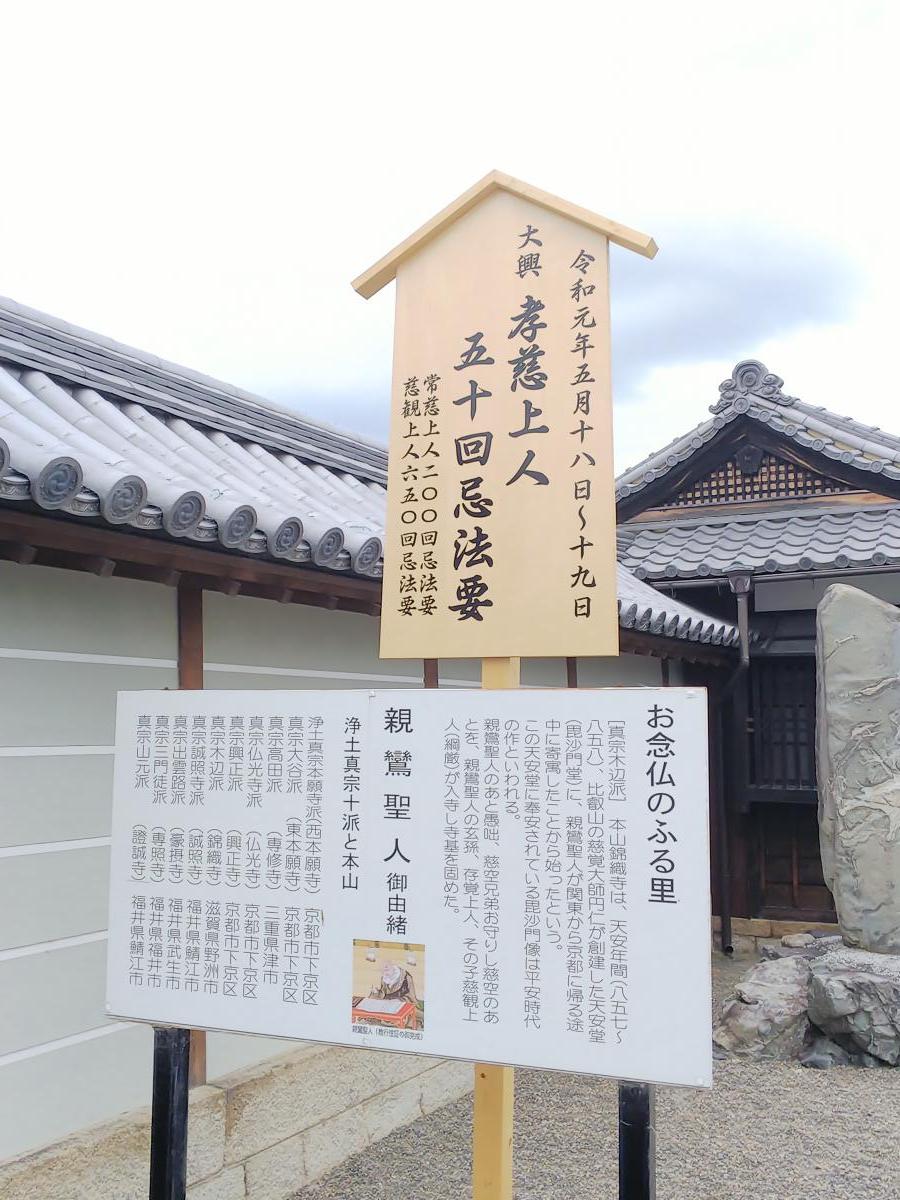 令和元年五月十八日～十九日
大興 孝慈上人
五十回忌法要
常慈上人二〇〇回忌法要
慈観上人六五〇回忌法要
お念仏のふる里
[真宗木辺派] 本山錦織寺は、天安年間(八五七～
八五八)、比叡山の慈覚大師円仁が創建した天安堂
(毘沙門堂)に、親鸞聖人が関東から京都に帰る途
中に寄寓したことから始ったという。
この天安堂に奉安されている毘沙門像は平安時代
の作といわれる。
親鸞聖人のあと愚咄、慈空兄弟お守りし慈空のあ
とを、親鸞聖人の玄孫、存覚上人、その子慈観上
人(綱厳)が入寺し寺基を固めた。
親鸞聖人 御由緒
親鸞聖人(教行信証の御完成)
浄土真宗十派と本山
浄土真宗本願寺派(西本願寺) 京都市下京区
真宗大谷派 (東本願寺) 京都市下京区
真宗高田派 (専修寺) 三重県津市
真宗仏光寺派 (仏光寺) 京都市下京区
真宗興正派 (興正寺) 京都市下京区
真宗木辺派 (錦織寺) 滋賀県野洲市
真宗誠照寺派 (誠照寺) 福井県鯖江市
真宗出雲路派 (豪摂寺) 福井県武生市
真宗三門徒派 (専照寺) 福井県福井市
真宗山元派 (證誠寺) 福井県鯖江市